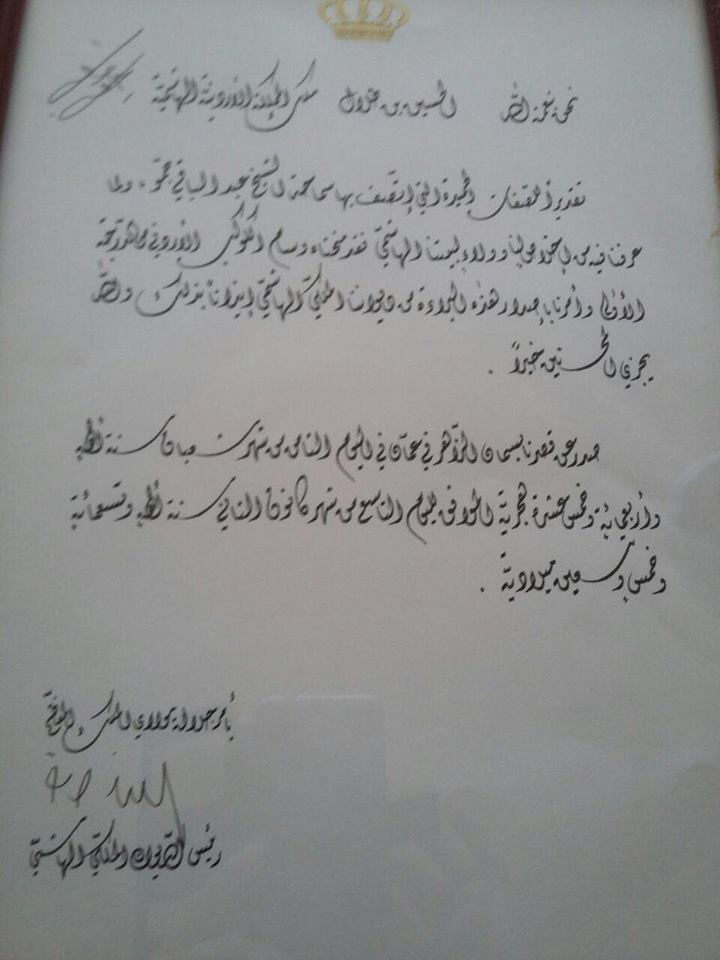 نحن بنعمة الله الحسين بن طلال ملك المملكة الأردنية الهاشمية
تقديراً للصفات الحميدة التي إتصف بها سماحة الشيخ عبد الباقي جمو ، ولما
عرفنا فيه من إخلاص لنا وولاء لبيتنا الهاشمي فقد منحناه وسام الكوكب الأردني من الدرجة
الأولى وأمرنا بإصدار هذه البراءة من ديواننا الملكي الهاشمي إيذاناً بذلك والله
يجزي المحسنين خيراً .
صدر عن قصرنا بسمان الزاهر في عمان في اليوم الثامن من شهر شعبان سنة ألف
وأربعمائة وخمس عشرة هجرية الموافق لليوم التاسع من شهر كانون الثاني سنة ألف وتسعمائة
وخمس وتسعين ميلادية .
بأمر جلالة مولاي الملك المعظم
رئيس الديوان الملكي الهاشمي